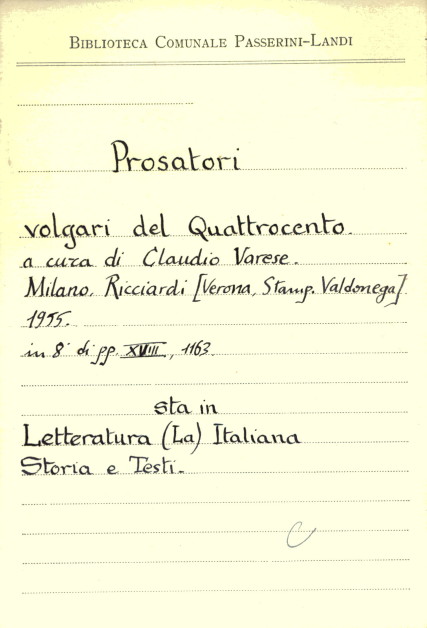 BIBLIOTECA COMUNALE PASSERINI-LANDI
Prosatori
volgari del Quattrocento.
a cura di Claudio Varese.
Milano, Ricciardi [Verona, Stamp. Valdonega]
1955.
in 8° di pp. XVIII, 1163.
sta in
Letteratura (La) Italiana
Storia e Testi.
C